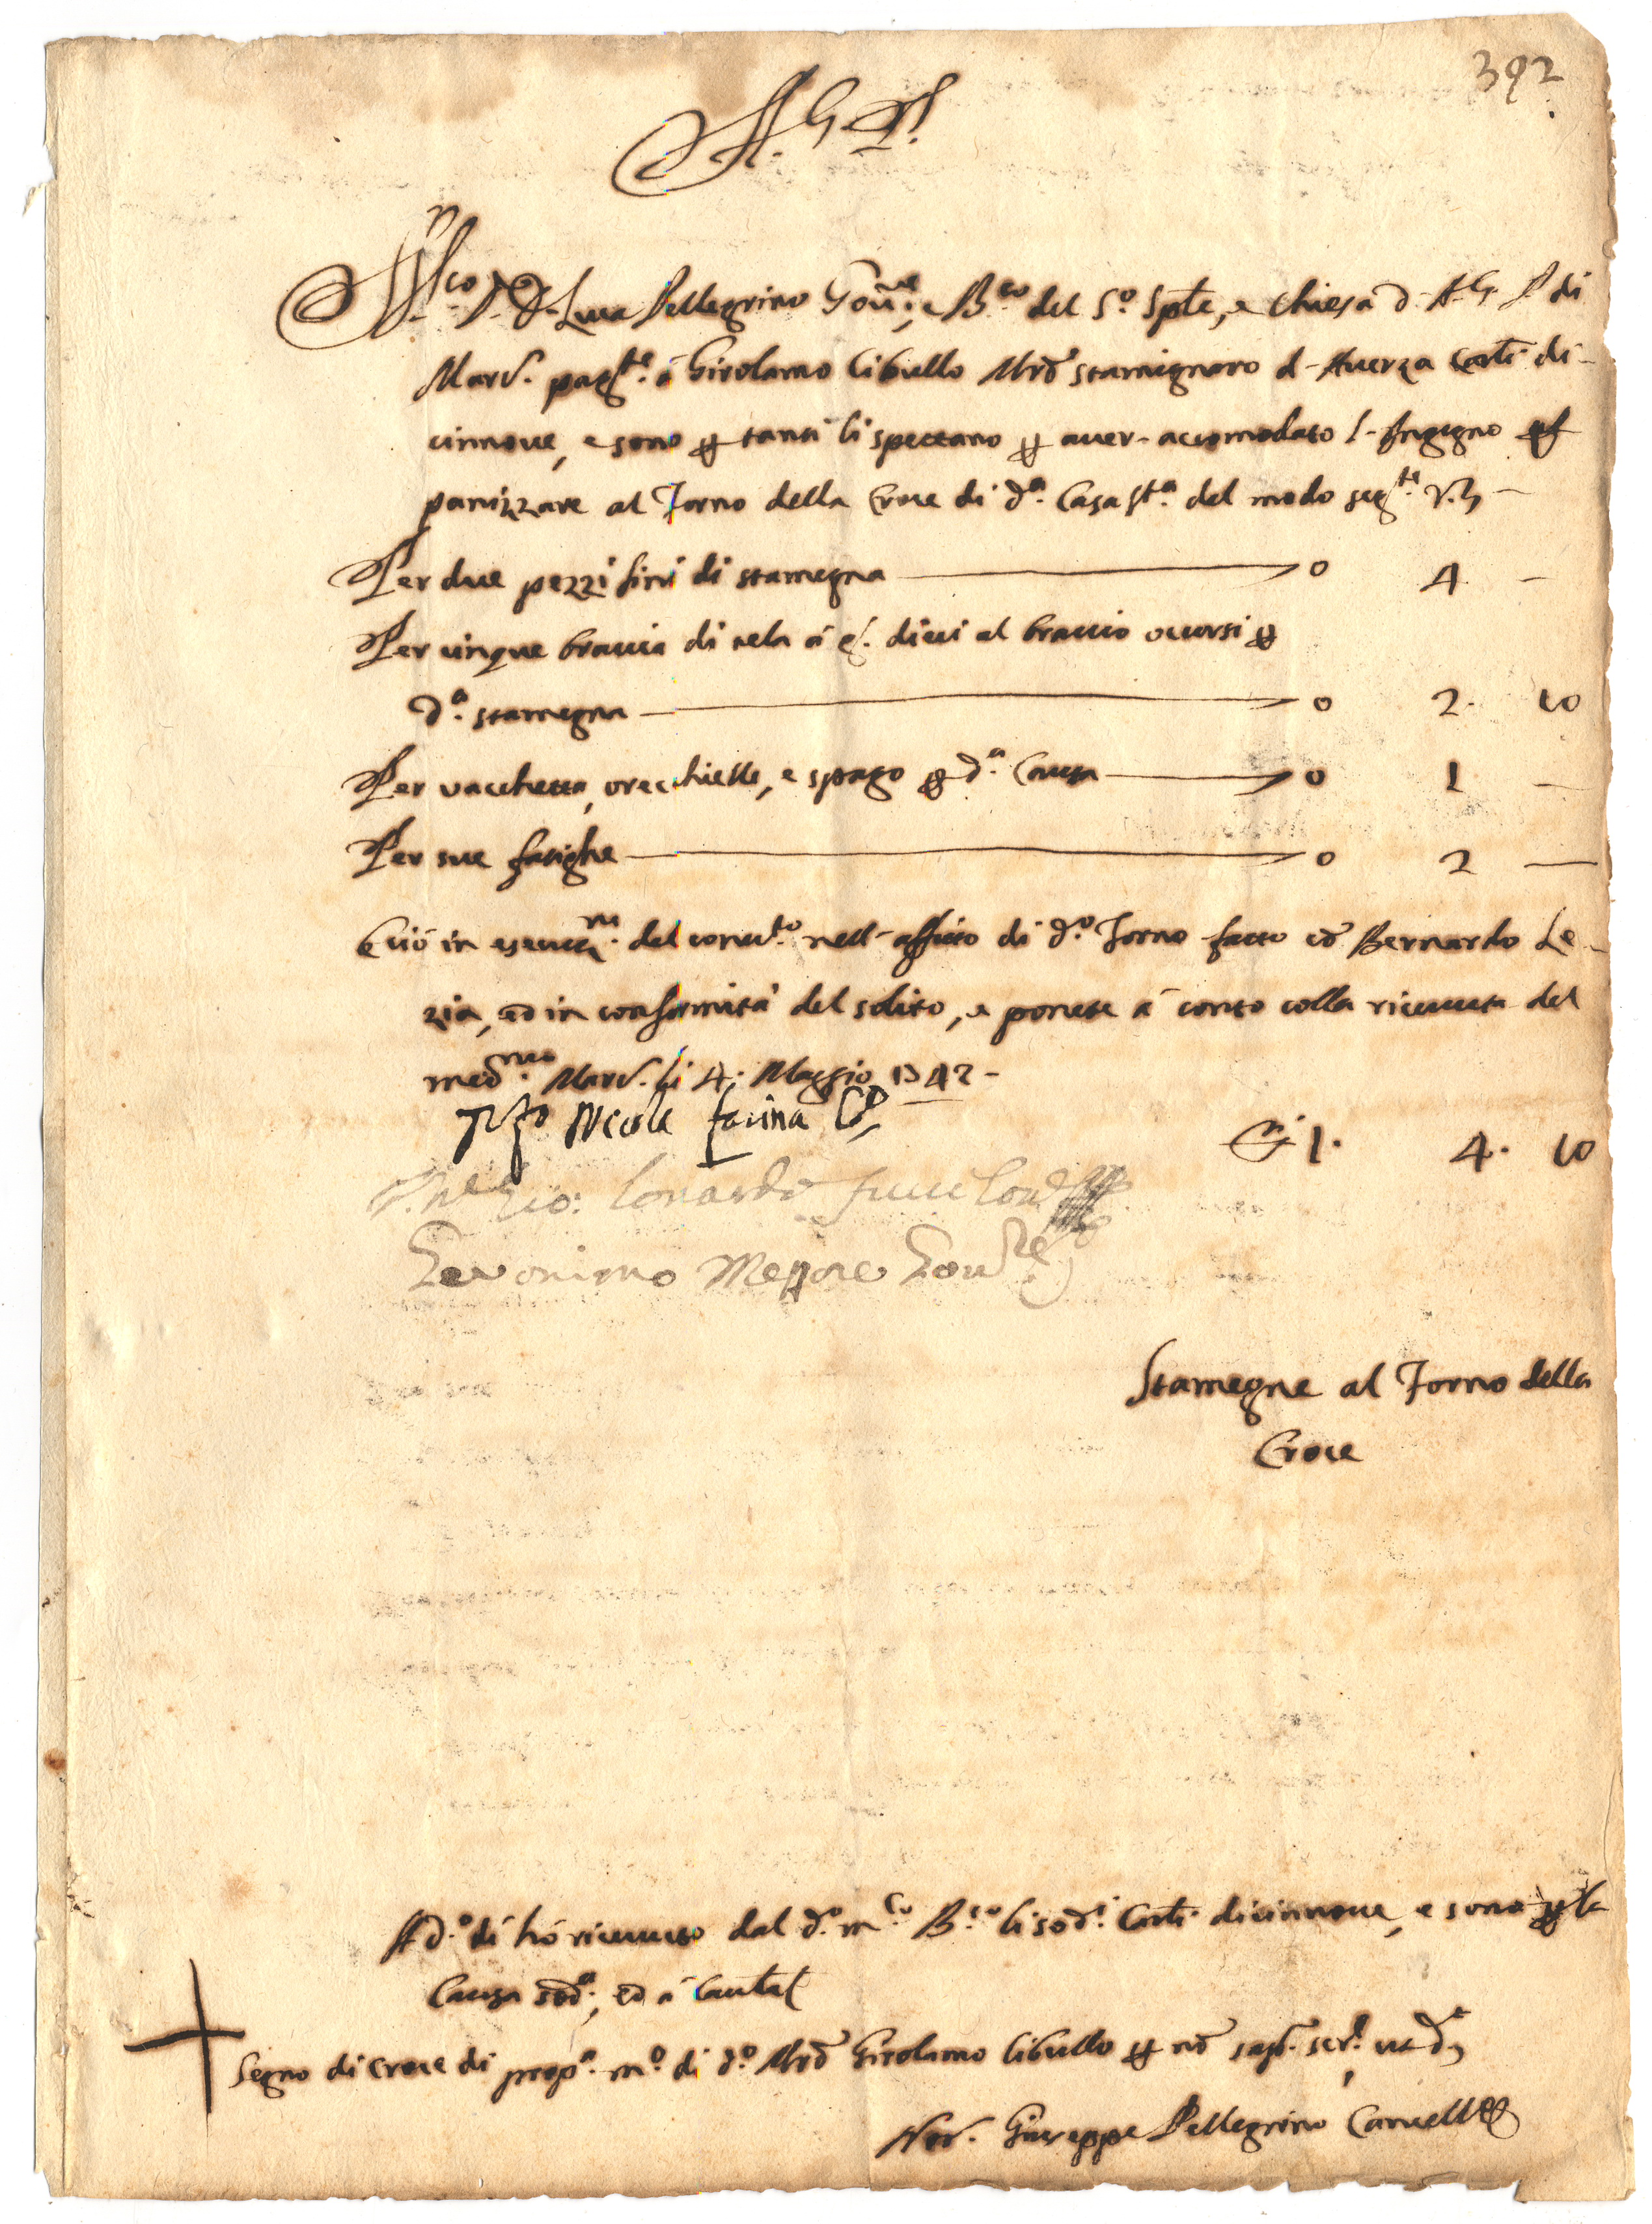 392
A. G. P.
M.co D. D. Luca Pellegrino Gov.re, e B.ro del S.o Sple, e Chiesa d. A. G. P. di
Mard. pag.te á Girolamo Cibullo Mrõ stamignaro d'Averza Carli di-
cinnove, e sono p tanti li spettano p aver accomodato l'Ingegno p
panizzare al Forno della Croce di d.a Casa S.ta del modo seg.te V.z
Per due pezzi fini di stamegna — 0 4 —
Per cinque braccia di tela á g.a dieci al braccio occorsi p
d.a stamegna — 0 2. 10
Per vacchetta, orecchielle, e spago p d.a Causa — 0 1 —
Per sue fatighe — 0 2 —
E ció in esecuz.ni del conv.to nell'affitto di d.o Forno fatto có Bernardo Le-
zia, ed in conformitá del solito, e ponete á conto colla ricevuta del
med.mo Mard. li 4. Maggio 1742 -
Nicola farina
D.i 1. 4. 10
Gio: Lonardo
Geronimo Gov.re
Stamegne al Forno della
Croce
A d.o dí hó ricevuto dal d.o m.co B.ro li sod.i Carli dicinnove, e sono p la
Causa sod.a, ed á Cautel
Segno di Croce di prop.a m.o di d.o Mrõ Girolamo Cibullo p nõ sap. scr. ut d.r
Not. Giuseppe Pellegrino Cancell.e